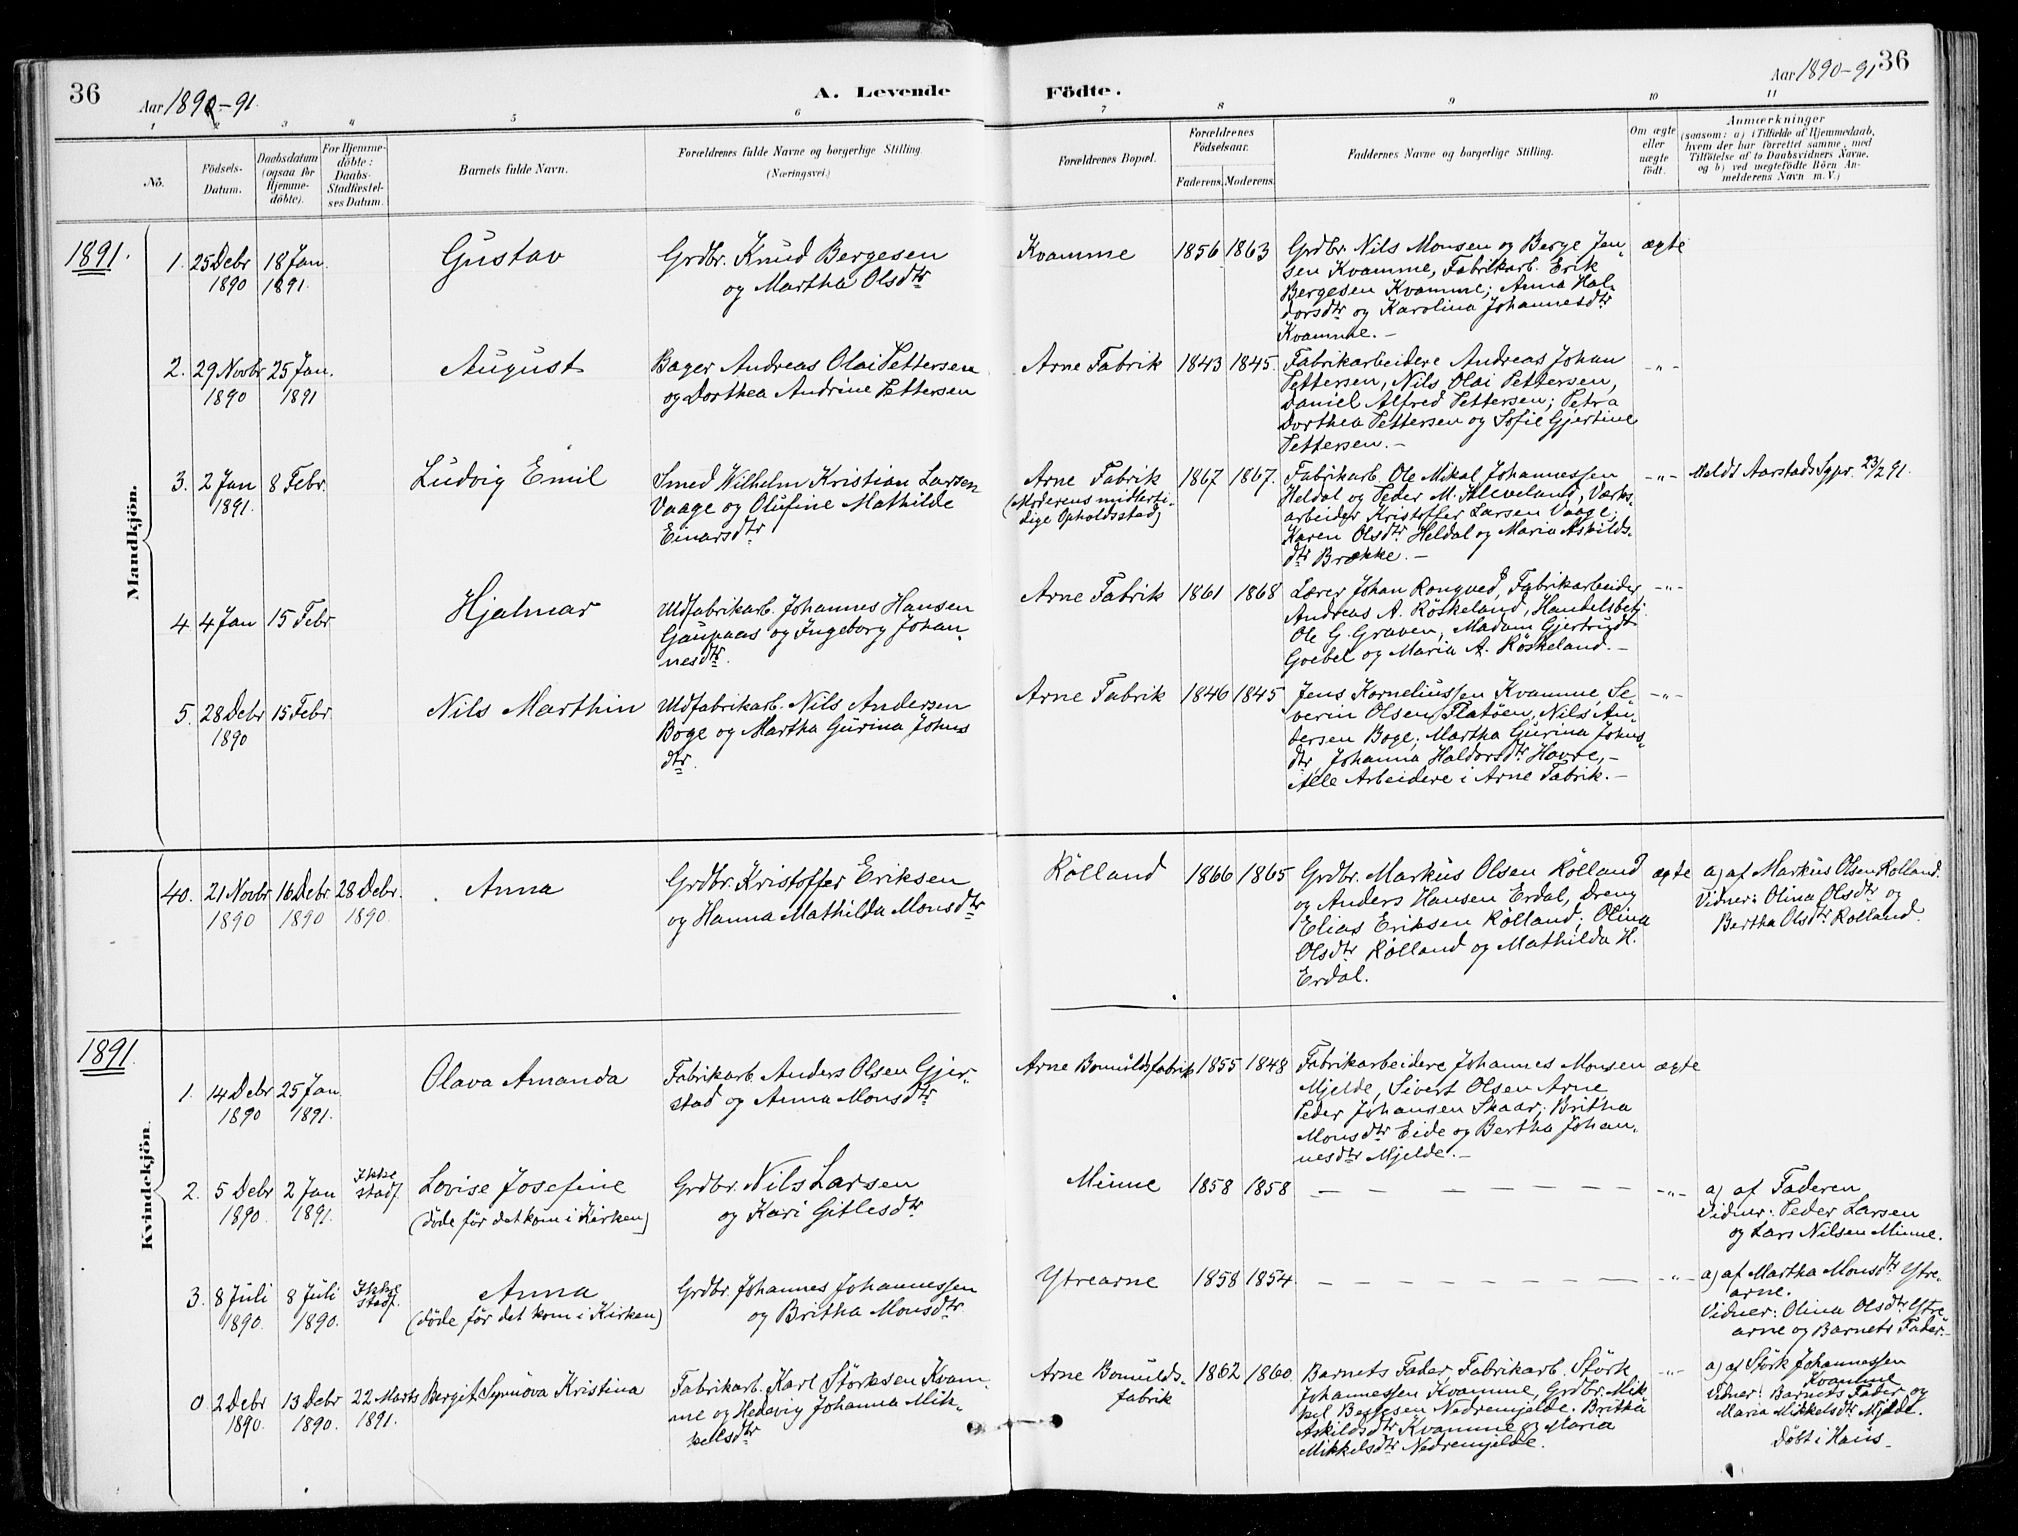 36
Aar 1890-91.
A. Levende
Födte.
Aar 1890-91
36
1 2 3 4 5 6 7 8 9 10 11
No.
Födsels-Datum.
Daabsdatum (ogsaa for Hjemmedöbte).
For Hjemmedöbte: Daabs-Stadfæstelses Datum.
Barnets fulde Navn.
Forældrenes fulde Navne og borgerlige Stilling. (Næringsvei.)
Forældrenes Bopæl.
Forældrenes Födselsaar.
Faderens. Moderens.
Faddernes Navne og borgerlige Stilling.
Om ægte eller uægte födt.
Anmærkninger
(saasom: a) i Tilfælde af Hjemmedaab, hvem der har forrettet samme, med Tilföielse af to Daabsvidners Navne, og b) ved uægtefödte Börn Anmelderens Navn m. V.)
Mandkjön.
1891.
1. 25 Debr 1890 18 Jan. 1891.
Gustav
Grdbr. Knud Bergesen
og Martha Olsdtr
Kvamme 1856 1863
Grdbr. Nils Monsen og Berge Jan-
sen Kvamme, Fabrikarb. Erik
Bergesen Kvamme; Anna Hal-
dorsdtr og Karolina Johannesdtr
Kvamme. –
ægte
2. 29 Novbr 1890 25 Jan. 1891
August
Bager Andreas Olai Pettersen
og Dorthea Andrine Pettersen
Arne Fabrik 1843 1845.
Fabrikarbeidere Andreas Johan
Pettersen, Nils Olai Pettersen,
Daniel Alfred Pettersen; Petra
Dorthea Pettersen og Sofie Gjertine
Pettersen. –
-"-
3. 2 Jan 1891. 8 Febr.
Ludvig Emil
Smed Wilhelm Kristian Larsen
Vaage og Olufine Mathilde
Einarsdtr
Arne Fabrik
(Moderens midlerti-
dige Opholdsstad)
1867 1867.
Fabrikarb. Ole Mikal Johannessen
Heldal og Peder M. Kleveland, Værks-
arbeider Kristoffer Larsen Vaage;
Karen Olsdtr Heldal og Maria Askilds-
dtr Brække. –
-"-
Meldt Aarstads Sgpr. 23/2 91.
4 4 Jan 15 Febr
Hjalmar
Uldfabrikarb. Johannes Hansen
Gaupaas og Ingeborg Johan-
nesdtr.
Arne Fabrik 1861 1868
Lærer Johan Rongved, Fabrikarbeider
Andreas A. Röskeland, Handelsbetj.
Ole G. Graven, Madam Gjertrudt
Goebel og Maria A. Röskeland. –
-"-
5. 28 Debr 1890 15 Febr
Nils Marthin
Uldfabrikarb. Nils Andersen
Boge og Martha Gurina Johns
dtr.
Arne Fabrik 1846 1845
Jens Korneliussen Kvamme, Se-
verin Olsen Flatöen, Nils An-
dersen Boge; Martha Gurina Johns-
dtr, Johanna Haldorsdtr Havre, –
Alle Arbeidere i Arne Fabrik. –
-"-
Kvindekjön.
40. 21 Novbr 1890 16 Debr 1890 28 Debr. 1890.
Anna
Grdbr. Kristoffer Eriksen
og Hanna Mathilda Monsdtr
Rölland 1866 1865
Grdbr. Markus Olsen Rölland
og Anders Hansen Erdal, Dreng
Elias Eriksen Rölland; Olina
Olsdtr Rölland og Mathilda H.
Erdal.
ægte
a) af Markus Olsen Rolland.
Vidner: Olina Olsdtr og
Bertha Olsdtr Rolland.
1891.
1. 14 Debr 1890 25 Jan 1891.
Olava Amanda
Fabrikarb. Anders Olsen Gjer-
stad og Anna Monsdtr
Arne Bomuldsfabrik 1855 1848
Fabrikarbeidere Johannes Monsen
Mjelde, Sivert Olsen Arne,
Peder Johansen Skaar; Britha
Monsdtr Eide og Bertha Johan-
nesdtr Mjelde. –
ægte
2. 5 Debr 1890. 2 Jan 1891. Ikke stadf.
Lovise Josefine
(döde för det kom i Kirken)
Grdbr. Nils Larsen
og Kari Gitlesdtr
Minne 1858 1858
– – – – – – – – –
-"-
a) af Faderen
Vidner: Peder Larsen
og Lars Nilsen Minne.
3. 8 Juli 1890. 8 Juli 1890. Ikke stadf.
Anna
(döde för det kom i Kirken)
Grdbr. Johannes Johannessen
og Britha Monsdtr
Ytrearne 1858 1854
– – – – – – – – –
-"-
a) af Martha Monsdtr Ytre-
arne.
Vidner: Olina Olsdtr Ytre
arne og Barnets Fader. –
0 2 Debr 1890. 13 Debr 1890. 22 Marts 1891.
Bergit Synnöva Kristina
Fabrikarb. Karl Störksen Kvam-
me og Hedevig Johanna Mik-
kelsdtr
Arne Bomulds-
fabrik
1862 1860
Barnets Fader, Fabrikarb. Störk
Johannessen Kvamme, Grdbr. Mik-
kel Bergesen Nedremjelde. Britha
Askildsdtr Kvamme og Maria
Mikkelsdtr Nedremjelde.
-"-
a) af Störk Johannessen
Kvamme
Vidner: Barnets Fader og
Maria Mikkelsdtr Mjelde.
Döbt i Haus.